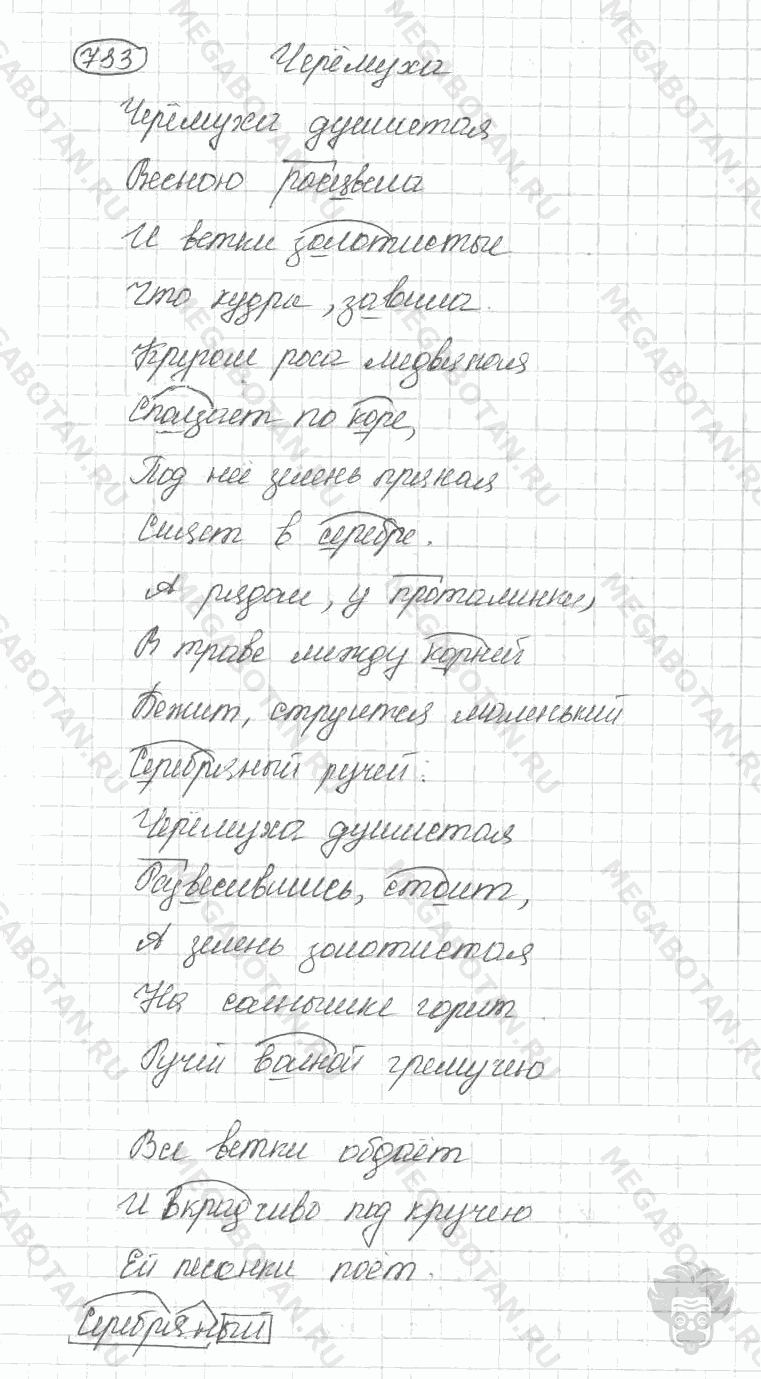 733 Черёмуха
Черёмуха душистая
Весною расцвела
И ветки золотистые
Что кудри, завила.
Кругом роса медвяная
Сползает по коре,
Под нее зелень пряная
Сияет в серебре.
А рядом, у проталинки,
В траве между корней
Бежит, струится маленький
Серебряный ручей.
Черёмуха душистая
Развесившись, стоит,
А зелень золотистая
На солнышке горит
Ручей волной гремучею
Все ветки обдаёт
И вкрадчиво под кручею
Ей песенки поёт.
Серебряный
MEGABOTAN.RU